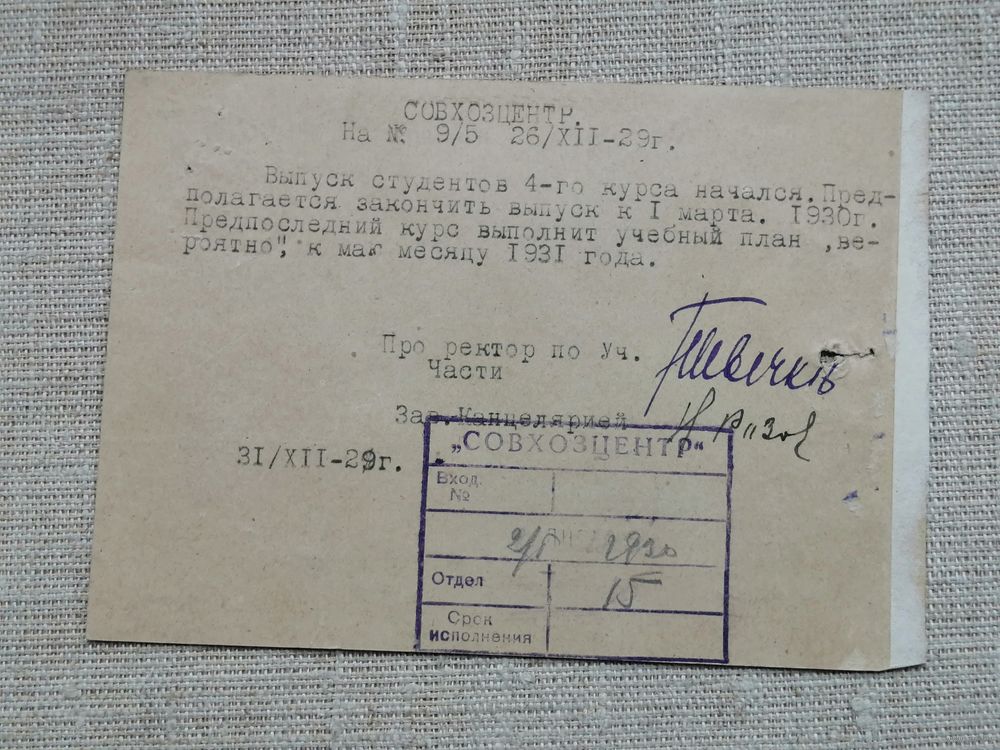 СОВХОЗЦЕНТР.
На № 9/5 26/XII-29г.
Выпуск студентов 4-го курса начался. Пред-
полагается закончить выпуск к I марта. 1930г.
Предпоследний курс выполнит учебный план „ве-
роятно", к мак месяцу 1931 года.
Про ректор по Уч.
Части
Зав. Канцелярией
31/XII-29г.
„СОВХОЗЦЕНТР“
Вход.
№
2/I 1930
Отдел 15
Срок
исполнения